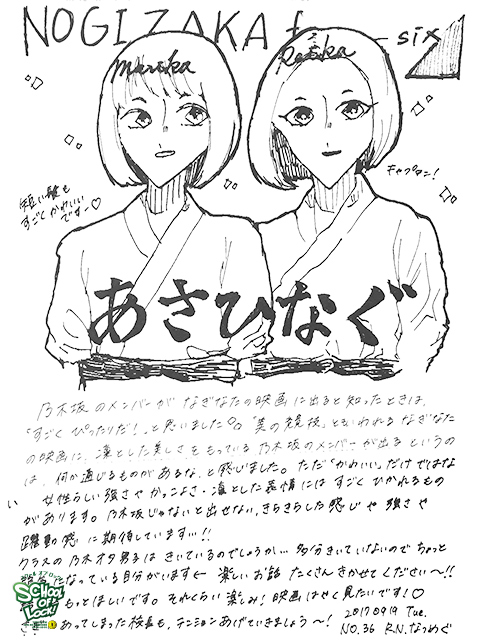 NOGIZAKA f six
Marika
Reika
短い髪も
すごくかわいい
です♡
キャプテン!
あさひなぐ
乃木坂のメンバーがなぎなたの映画に出ると知ったときは、
「すごくぴったりだ!」と思いました。"美の競技"ともいわれるなぎなた
の映画に、凛とした美しさをもっている乃木坂のメンバーが出るというの
は、何か通じるものがあるな、と感じました。ただ"かわいい"だけではな
い
女性らしい強さやかっこよさ・凛とした表情にはすごくひかれるもの
があります。乃木坂じゃないと出せない、きらきらした感じや強さや
躍動感に期待しています…!!
クラスの乃木オタ男子はきいているのでしょうか…多分きいていないのでちょっと
なっている自分がいます← 楽しいお話たくさんきかせてください〜!!
もっとほしいです。それくらい楽しみ!映画はやく見たいです!♡
あってしまった校長も、テンションあげていきましょう〜!
2017.09.19 Tue.
NO.36 R.N.なつめぐ
SCHOOL OF LOCK!